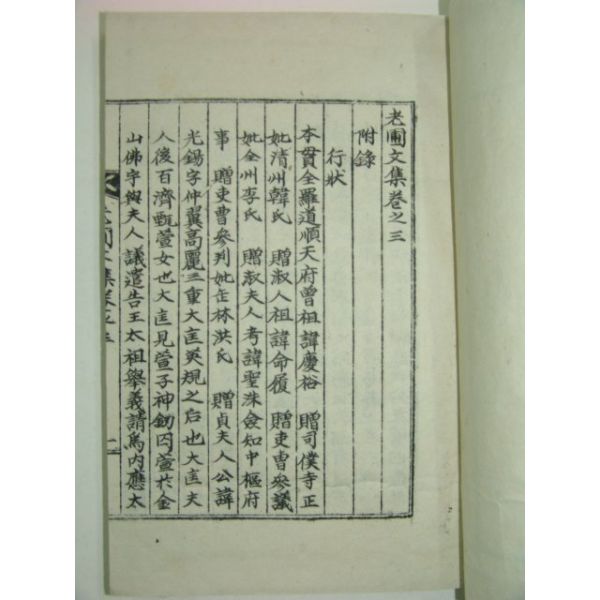 老圃文集卷之三
附錄
行狀
本貫全羅道順天府曾祖諱慶裕 贈司僕寺正
妣淸州韓氏 贈淑人祖諱命履 贈吏曹參議
妣全州李氏 贈淑夫人考諱聖洙僉知中樞府
事 贈吏曹參判妣缶林洪氏 贈貞夫人公諱
光錫字仲翼高麗三重大匡英規之后也大匡夫
人後百濟甄萱女也大匡見萱子神釰囚萱於金
山佛宇與夫人議遣告王太祖擧義請爲內應太